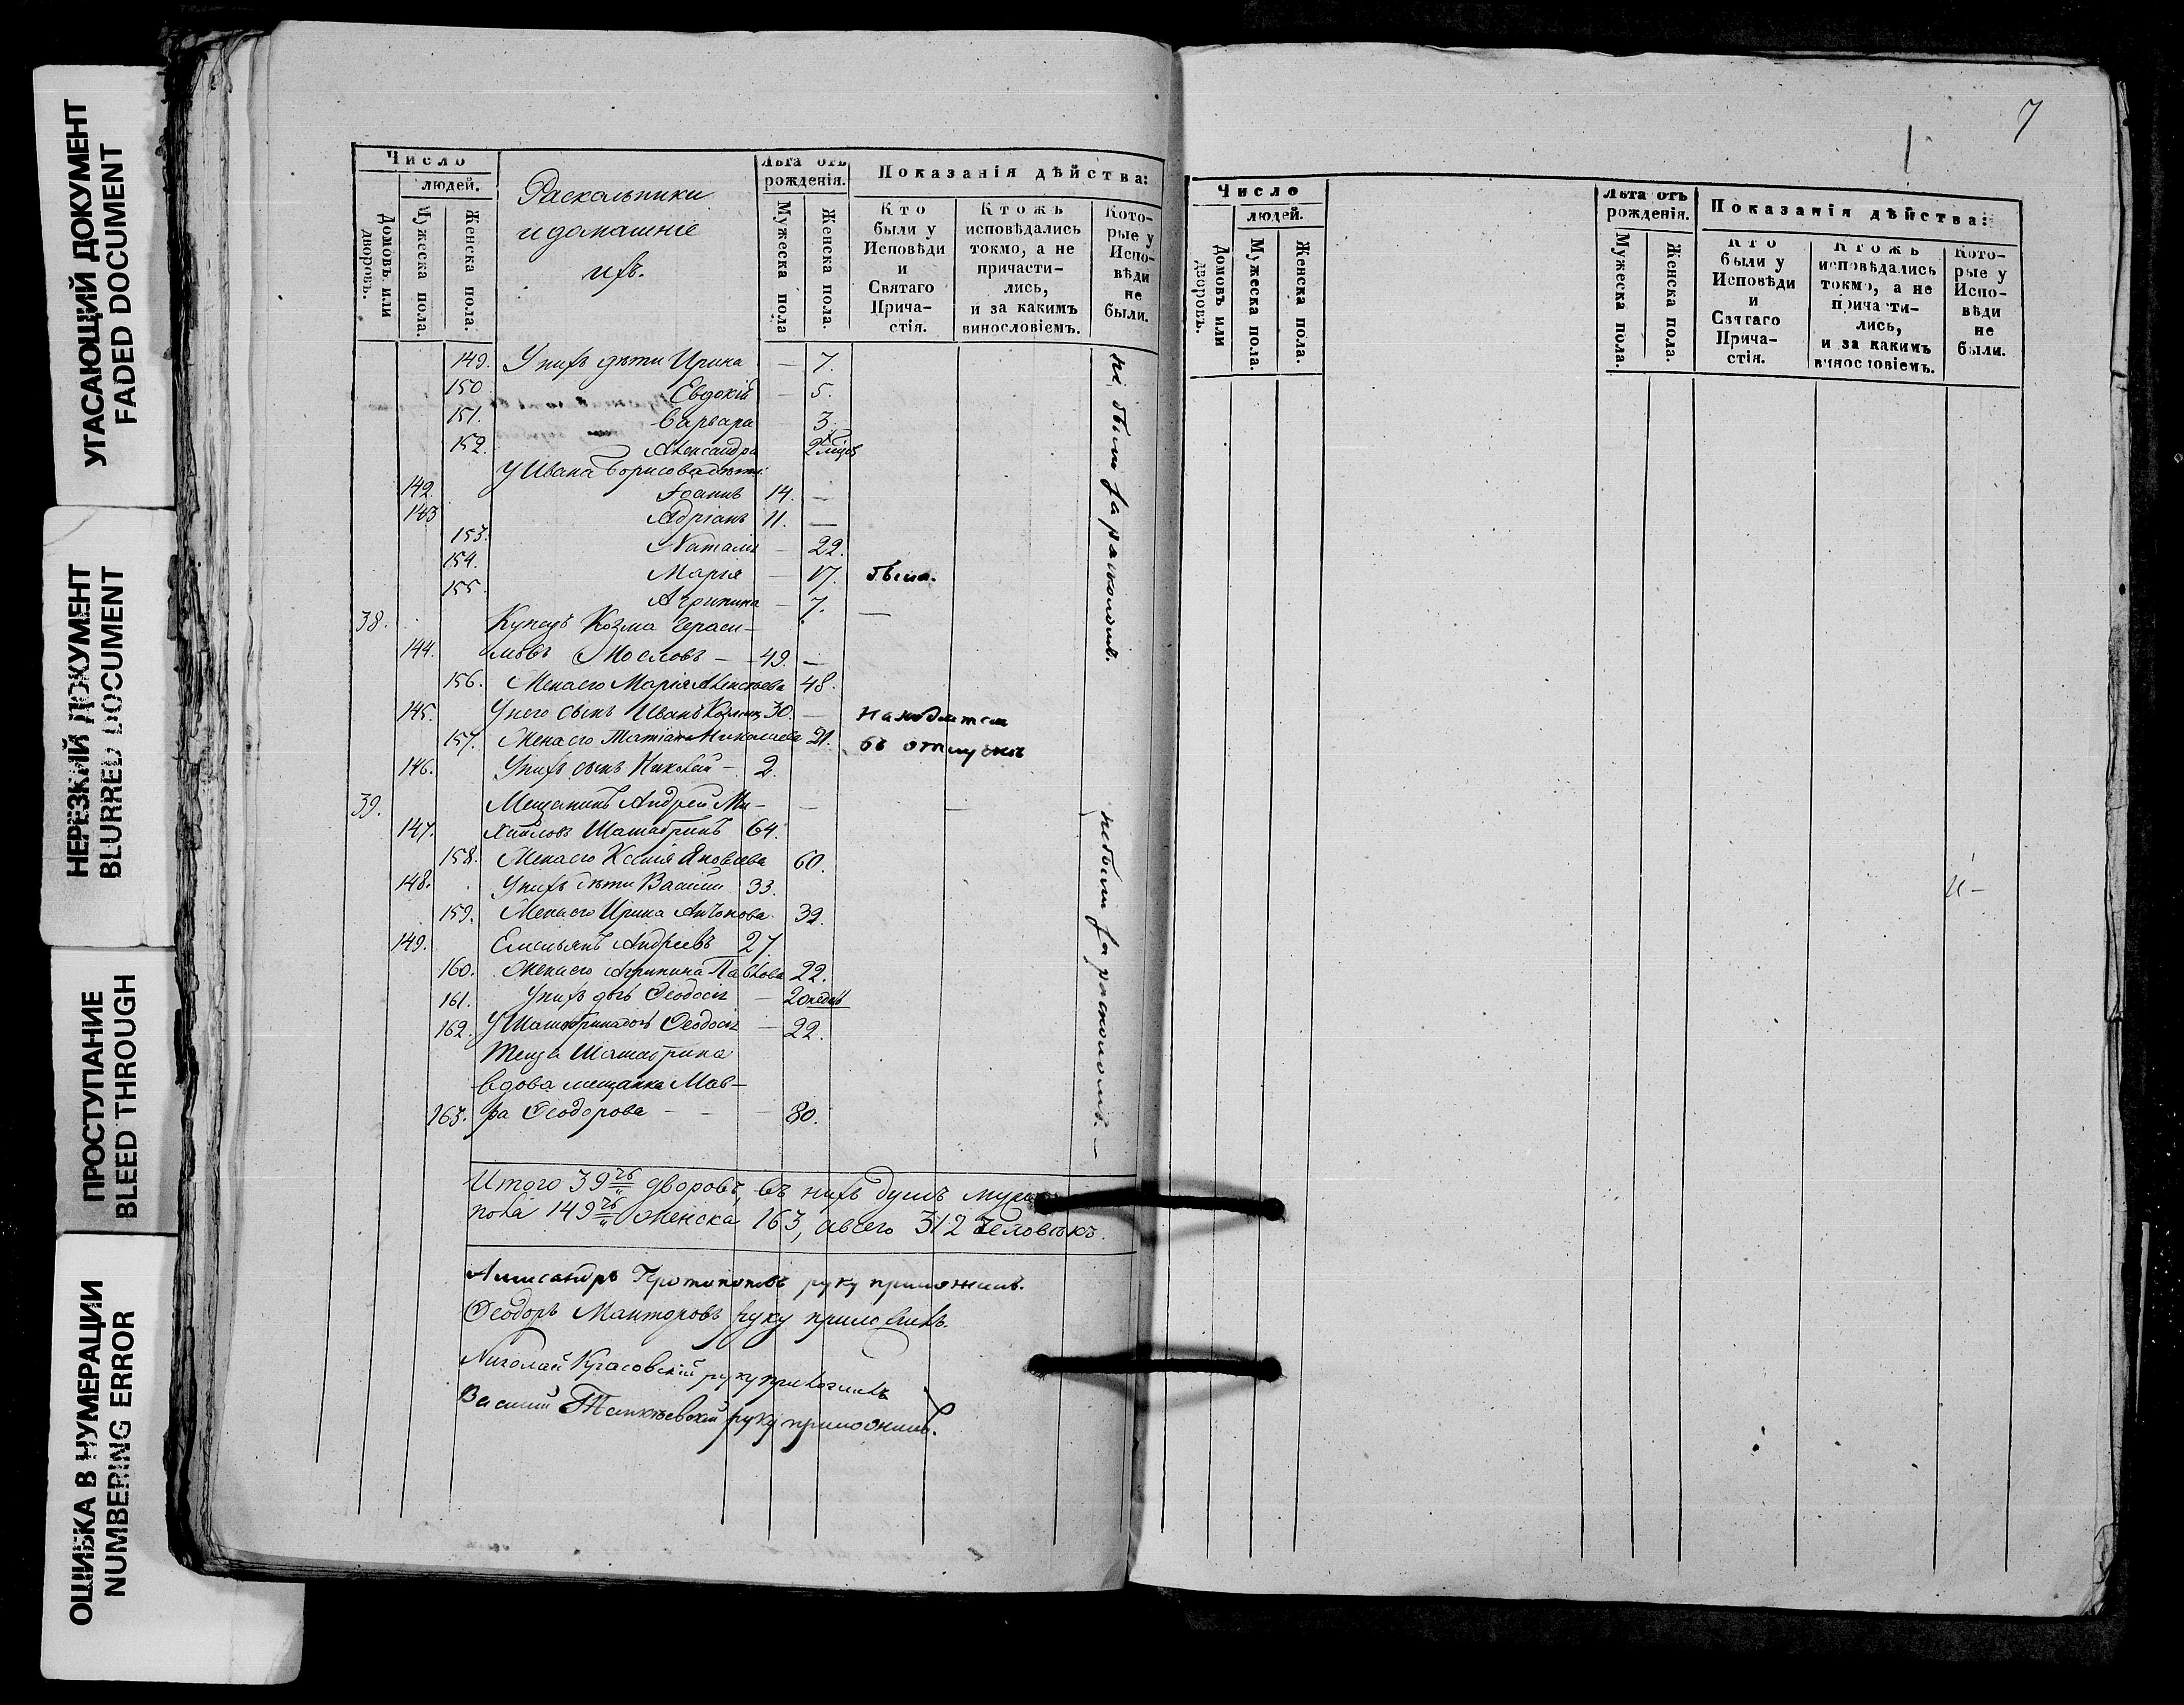 УГАСАЮЩИЙ ДОКУМЕНТ
FADED DOCUMENT
НЕРЕЗКИЙ ДОКУМЕНТ
BLURRED DOCUMENT
ПРОСТУПАНИЕ
BLEED THROUGH
ОШИБКА В НУМЕРАЦИИ
NUMBERING ERROR
Число
людей.
Домовъ или дворовъ.
Мужеска пола.
Женска пола.
Раскольники
и домашніе
ихъ.
Лѣта отъ рожденія.
Мужеска пола
Женска пола.
Показанія дѣйства:
Кто были у Исповѣди и Святаго Прича-стія.
Ктожъ исповѣдались токмо, а не причасти-лись, и за какимъ винословіемъ.
Кото-рые у Испо-вѣди не были.
149. У нихъ дѣти Ирина — 7.
150 Евдокій — 5.
151. Варвара 3.
152. Александра 2 мцъ
У Ивана Борисова дѣти:
142. Іоаннъ 14. —
143 Адріанъ 11. —
153. Наталія — 22.
154. Марія — 17. была.
155. Агрипина — 7. —
не были за расколомъ.
38. Купецъ Козма Гераси-
144. мовъ Мословъ — 49. —
156. Жена его Марія Алексѣева 48.
145. У него сынъ Иванъ Козминъ 30. — находится
157. Жена его Татіана Николаева 21. въ отлучкѣ
146. У нихъ сынъ Николай — 2.
39. Мещанинъ Андрей Ми- — —
147. хайловъ Шашабринъ 64.
158. Жена его Ксенія Яковлева 60.
148. У нихъ дѣти Василій 33.
159. Жена его Ирина Антонова 32.
149. Емельянъ Андреевъ 27.
160. Жена его Агрипина Павлова 22.
161. У нихъ дчь Ѳеодосія — 20 недѣль
162. У Шашабрина дочь Ѳеодосія — 22.
Теща Шашабрина
вдова мещанка Мав-
163. ра Ѳеодорова — — — 80.
не были за расколомъ. —
Итого 39ть дворовъ, въ нихъ душъ мужеска
пола 149ть женска 163, а всего 312 человѣкъ.
Александръ Протопоповъ руку приложилъ.
Ѳеодоръ Манторовъ руку приложилъ.
Николай Красовскій руку приложилъ
Василій руку приложилъ.
7
Число
людей.
Домовъ или дворовъ.
Мужеска пола.
Женска пола.
Лѣта отъ рожденія.
Мужеска пола.
Женска пола.
Показанія дѣйства:
Кто были у Исповѣди и Святаго Прича-стія.
Ктожъ исповѣдались токмо, а не причасти-лись, и за какимъ винословіемъ.
Кото-рые у Испо-вѣди не были.